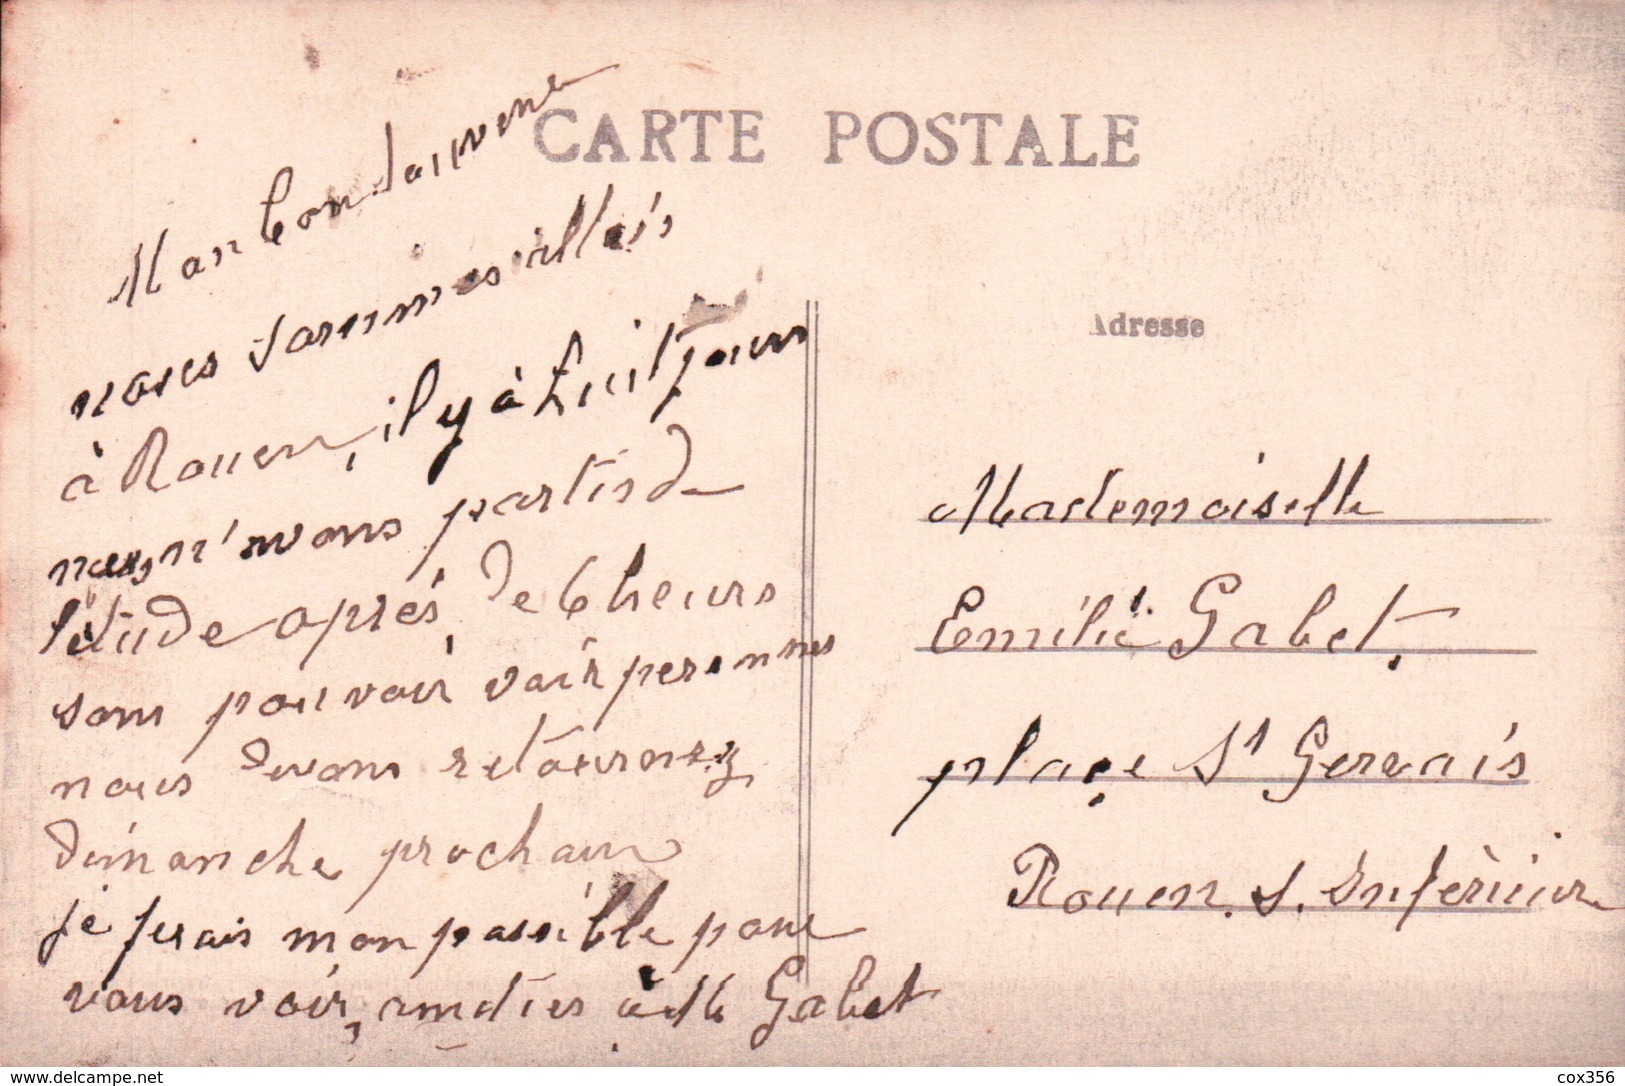 CARTE POSTALE
Mon bon souvenir
nous sommes allés
à Rouen, il y à huit jours
nous, n'avons partis de
l'étude après de 6 heurs
sans pouvoir voir personnes
nous devons retournez
dimanche prochain
je ferais mon possible pour
vous voir, amitiés à Mlle Gabet
Adresse
Mademoiselle
Emilie Gabet.
place St Gervais
Rouen. S. Inférieur
http://www.delcampe.net
cox356